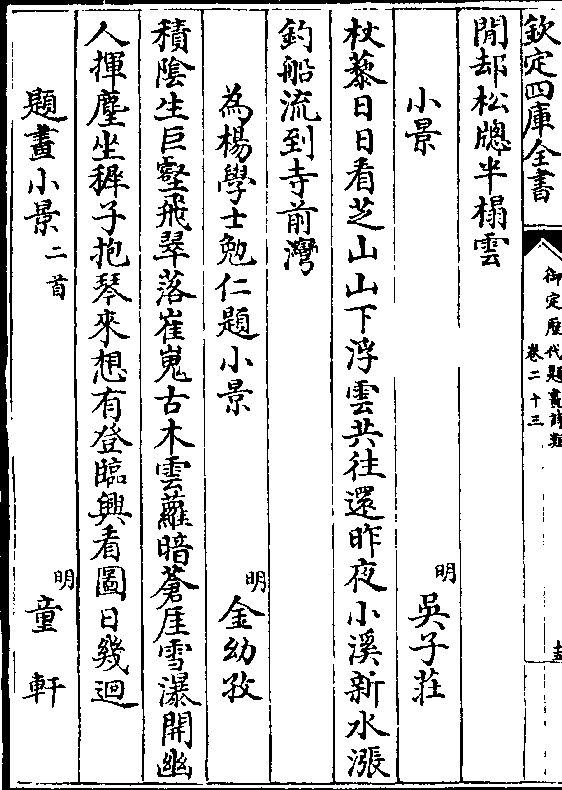 欽定四庫全書
御定歷代題畫詩類
卷二十三
閒却松牕半榻雲
小景
明
吳子莊
杖藜日日看芝山山下浮雲共往還昨夜小溪新水漲
釣船流到寺前灣
為楊學士勉仁題小景
明
金幼孜
積陰生巨壑飛翠落崔嵬古木雲蘿暗蒼厓雪瀑開幽
人揮麈坐穉子抱琴來想有登臨興看圖日幾迴
題畫小景二首
明
童軒